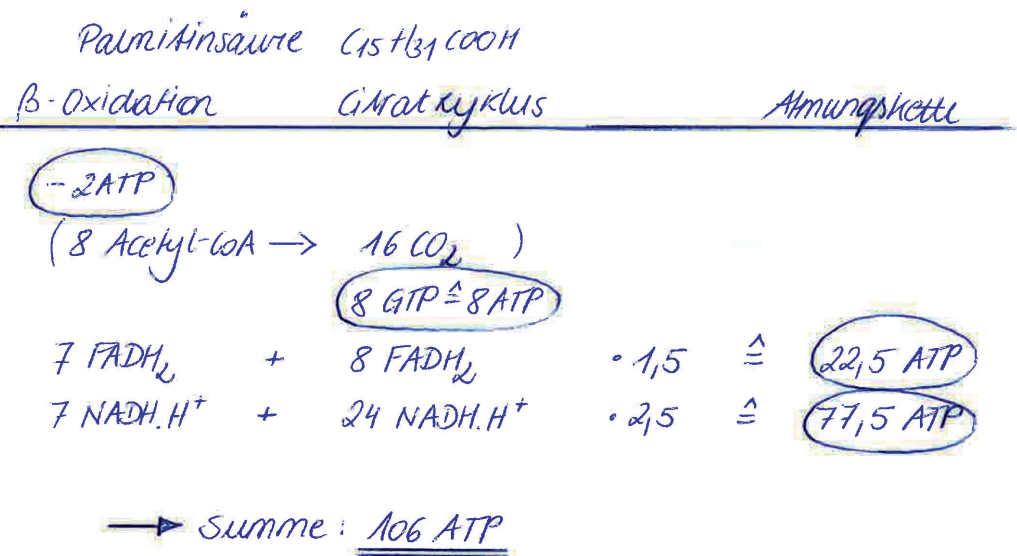 Palmitinsäure C15H31COOH
β-Oxidation Citratzyklus Atmungskette
- 2ATP
(8 Acetyl-CoA → 16 CO2 )
8 GTP ≙ 8ATP
7 FADH2 + 8 FADH2 · 1,5 ≙ 22,5 ATP
7 NADH.H+ + 24 NADH.H+ · 2,5 ≙ 77,5 ATP
→ Summe: 106 ATP